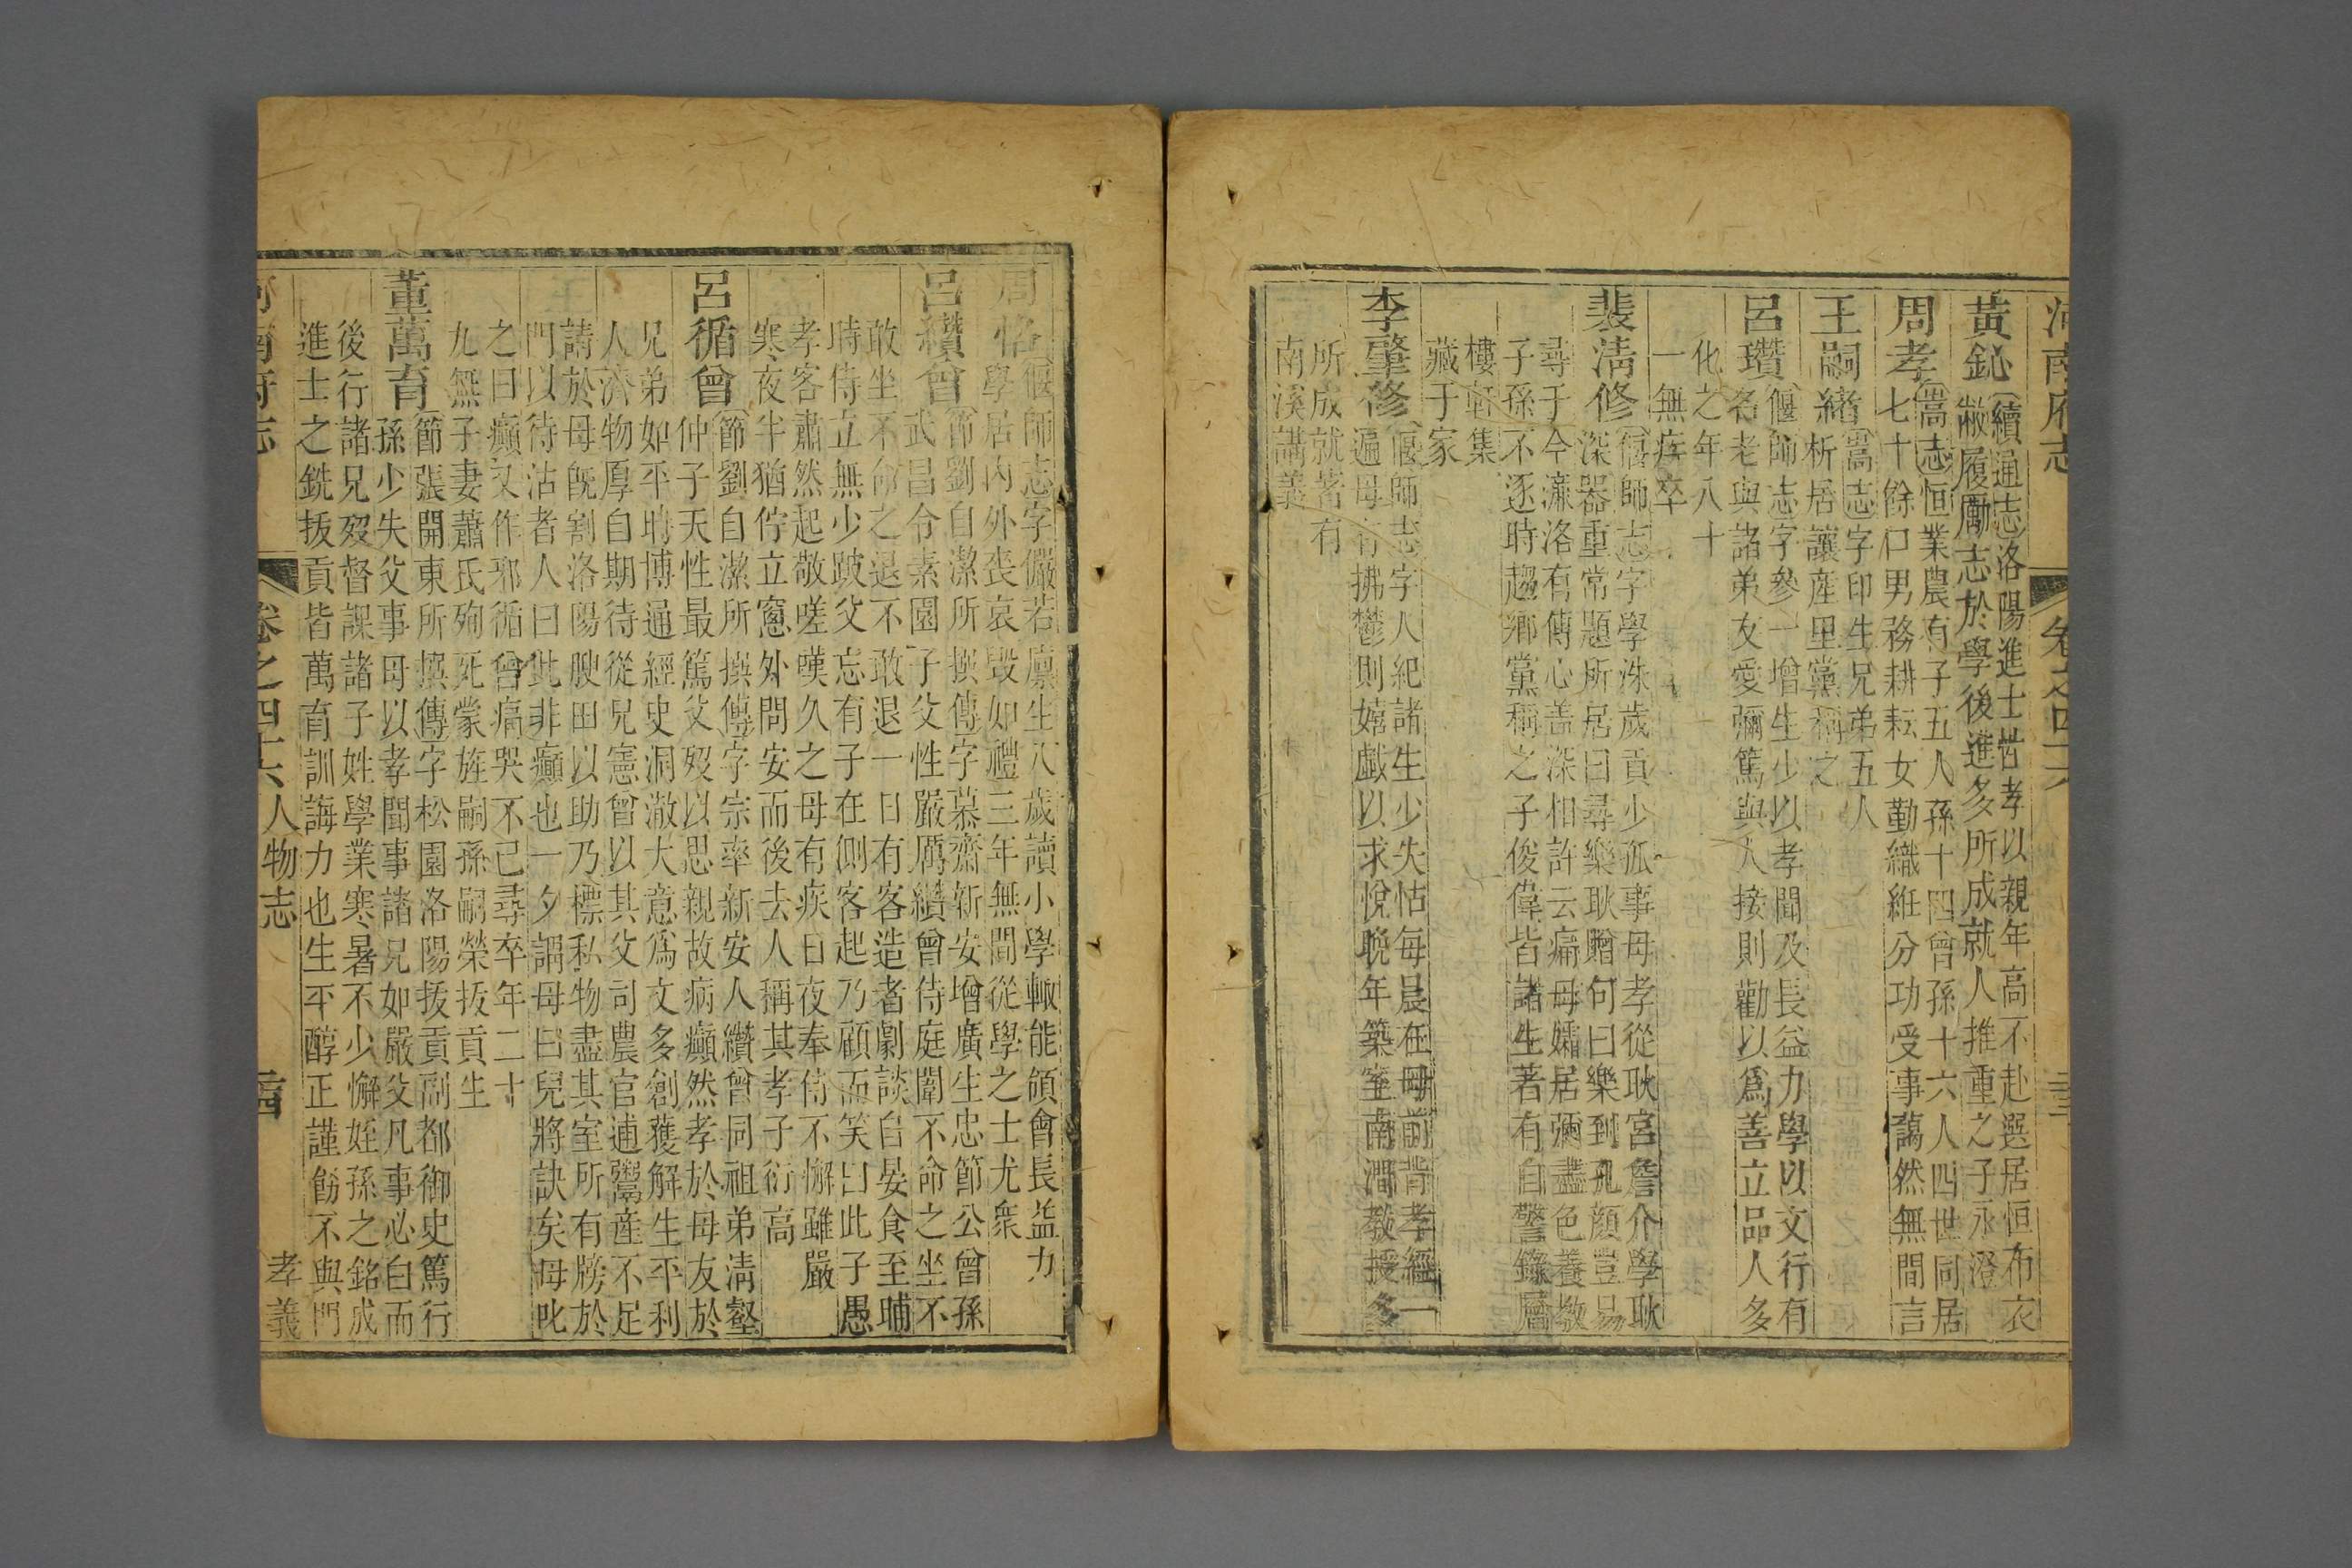 河南府志
卷之四十六
黃鉍
續通志洛陽進士性孝以親年高不赴選居恒布衣
敝履勵志於學後進多所成就人推重之子永澄
周孝
嵩志恒業農有子五人孫十四曾孫十六人四世同居
七十餘口男務耕耘女勤織紝分功受事藹然無間言
王嗣緒
嵩志字印生兄弟五人
析居讓産里黨稱之
呂瓚
偃師志字參一增生少以孝聞及長益力學以文行有
名老與諸弟友愛彌篤與人接則勸以爲善立品人多
化之年八十
一無疾卒
裴淸修
偃師志字學洙歲貢少孤事母孝從耿宮詹介學耿
深器重常題所居曰尋樂耿贈句曰樂到孔顏豈易
尋于今濂洛有傳心善深相許云痛母孀居彌盡色養敎
子孫不逐時趨鄉黨稱之子俊偉皆諸生著有自警錄層
樓軒集
藏于家
李肇修
偃師志字人紀諸生少失怙每晨在母前背孝經一
遍母有拂鬱則嬉戲以求悅晚年築室南澗敎授多
所成就著有
南溪講義
周恪
偃師志字儼若廩生八歲讀小學輙能領會長益力
學居內外喪哀毀如禮三年無間從學之士尤衆
呂纘曾
節劉自潔所撰傳字慕齋新安增廣生忠節公曾孫
武昌令素園子父性嚴厲纘曾侍庭闈不命之坐不
敢坐不命之退不敢退一日有客造者劇談自晏食至晡
時侍立無少跛父忘有子在側客起乃顧而笑曰此子愚
孝客肅然起敬嗟嘆久之母有疾日夜奉侍不懈雖嚴
寒夜半猶佇立窻外問安而後去人稱其孝子衍高
呂循曾
節劉自潔所撰傳字宗率新安人纘曾同祖弟淸壑
仲子天性最篤父歿以思親故病癲然孝於母友於
兄弟如平時博通經史洞澈大意爲文多創獲解生平利
人濟物厚自期待從兄憲曾以其父司農官逋鬻産不足
請於母旣割洛陽腴田以助乃標私物盡其室所有牓於
門以待沽者人曰此非癲也一夕謂母曰兒將訣矣母叱
之曰癲又作邪循曾痛哭不已尋卒年二十
九無子妻蕭氏殉死蒙旌嗣孫嗣榮拔貢生
董萬育
節張開東所撰傳字松園洛陽拔貢副都御史篤行
孫少失父事母以孝聞事諸兄如嚴父凡事必白而
後行諸兄歿督課諸子姓學業寒暑不少懈姪孫之銘成
進士之銑拔貢皆萬育訓誨力也生平醇正謹飭不與門
河南府志
卷之四十六
人物志
孝義